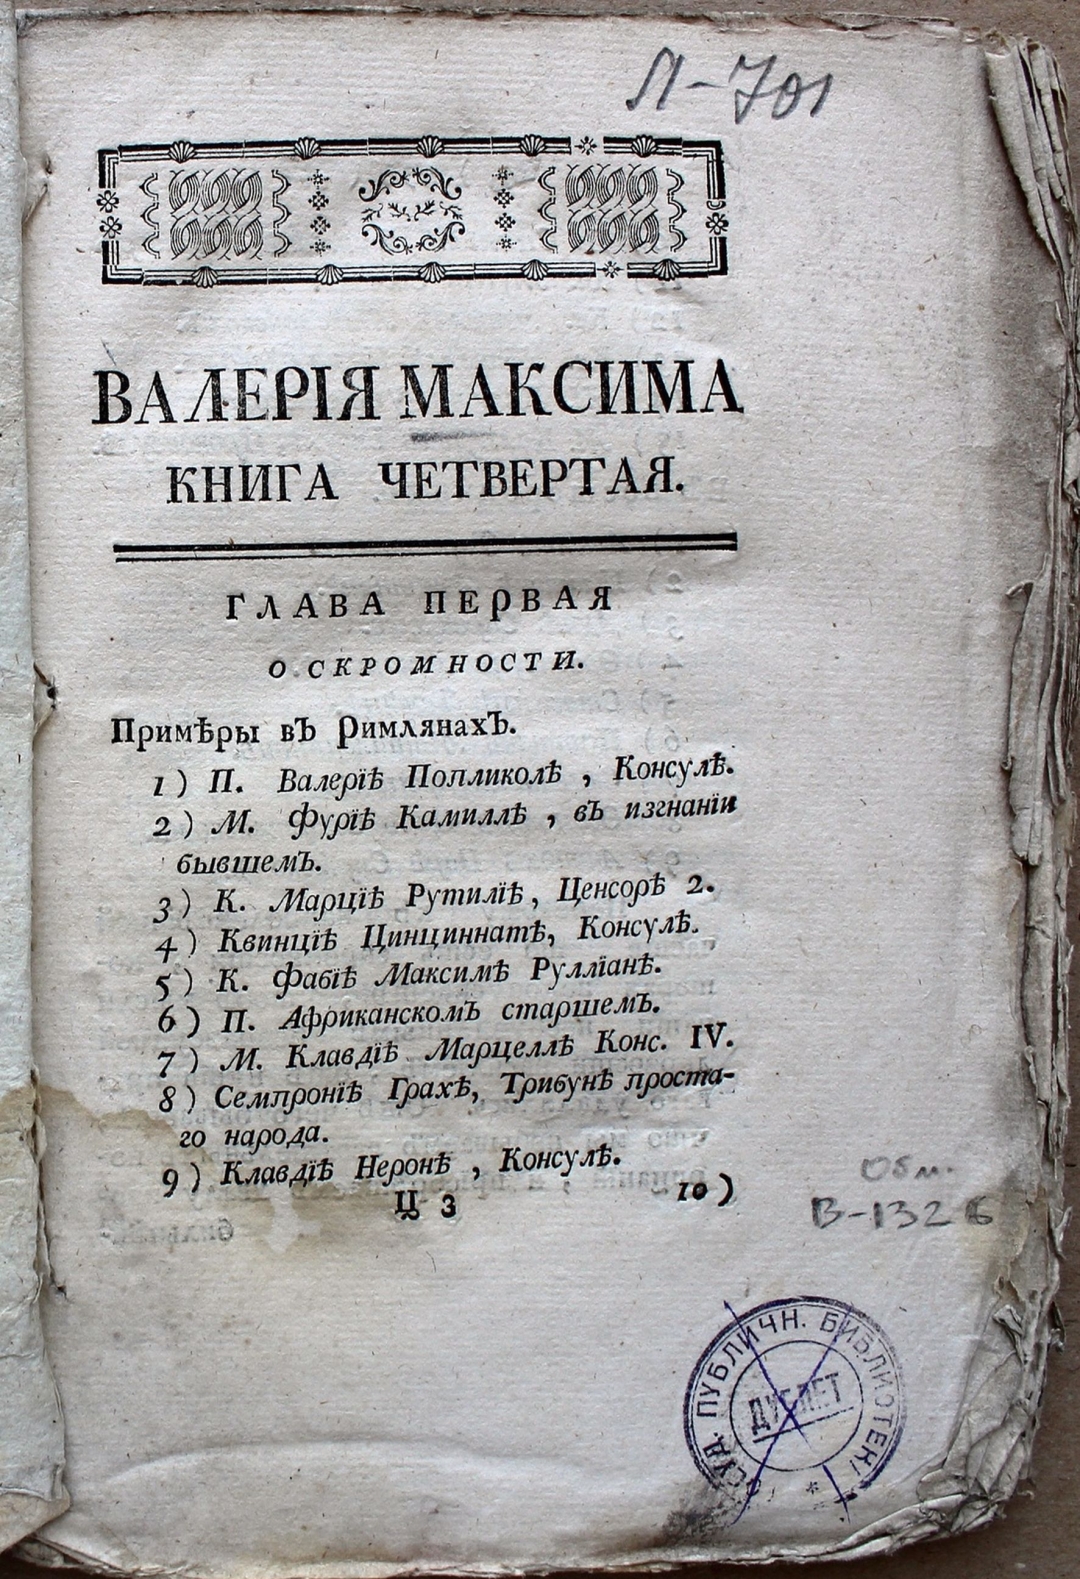 Л-701
ВАЛЕРІЯ МАКСИМА
КНИГА ЧЕТВЕРТАЯ.
ГЛАВА ПЕРВАЯ
О СКРОМНОСТИ.
Примѣры въ Римлянахъ.
1) П. Валеріѣ Попликолѣ, Консулѣ.
2) М. Фуріѣ Камиллѣ, въ изгнаніи
бывшемъ.
3) К. Марціѣ Рутиліѣ, Ценсорѣ 2.
4) Квинціѣ Цинциннатѣ, Консулѣ.
5) К. Фабіѣ Максимѣ Рулліанѣ.
6) П. Африканскомъ старшемъ.
7) М. Клавдіѣ Марцеллѣ Конс. IV.
8) Семпроніѣ Грахѣ, Трибунѣ проста-
го народа.
9) Клавдіѣ Неронѣ, Консулѣ.
Ц 3 10)
Обм.
В-132 Б
ПУБЛИЧН. БИБЛИОТЕК
ДУБЛЕТ